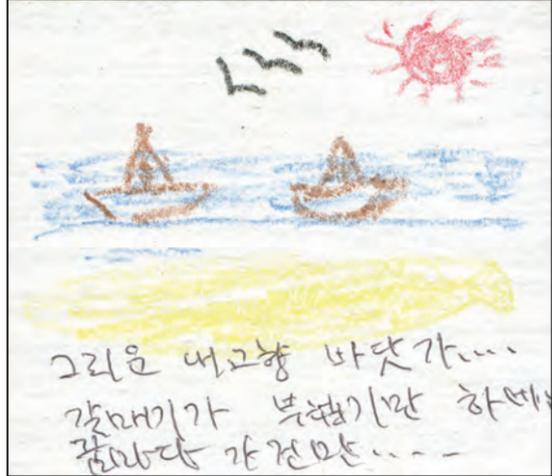 그리운 내고향 바닷가....
갈매기가 부럽기만 하네
꿈마다 가건만....